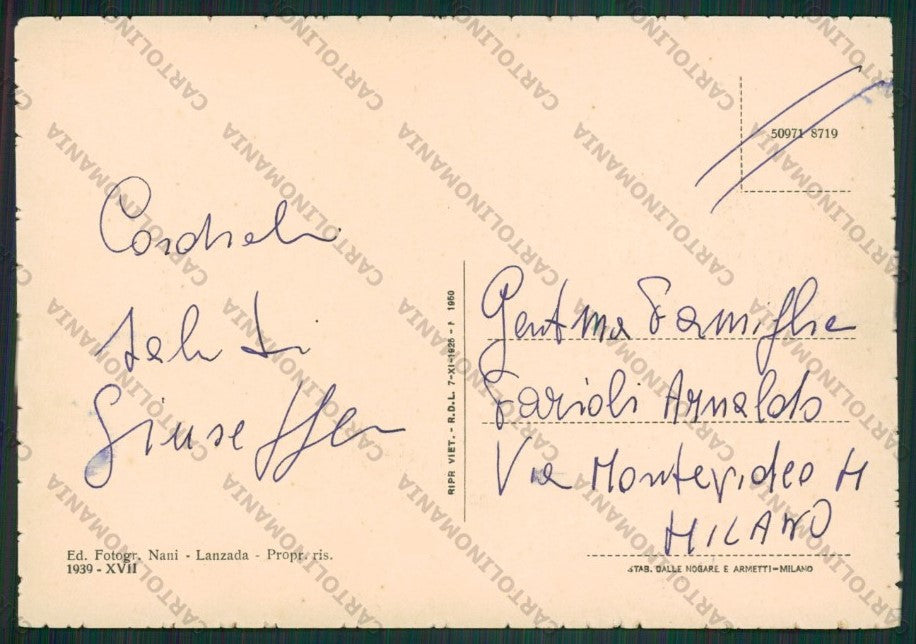 50971 8719
Cordiali
saluti
Giuseppe
Gent.ma Famiglia
Farioli Arnaldo
Via Montevideo
MILANO
RIPR VIET. - R.D.L. 7-XI-1925 - N 1950
Ed. Fotogr. Nani - Lanzada - Propr. ris.
1939 - XVII
STAB. DALLE NOGARE E ARMETTI-MILANO
CARTOLINOMANIA